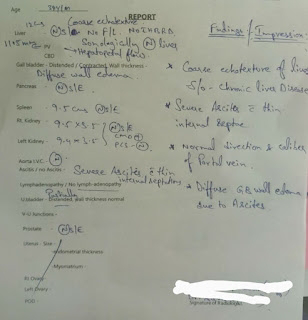 Age 38y/M
REPORT
12 Cm Coarse echotexture
Liver (N)S/E No F/L. No IHBRD
11+5 mm PV Sonologically (N) liver
CBD Hepatopetal flow
Gall bladder - Distended / Contracted, Wall thickness -
Diffuse wall edema
Pancreas (N)S/E
Spleen 9.5 cm (N)S/E
Rt. Kidney 9.5 x 3.5 (N)S/E
Left Kidney 9.4 x 3.5 CMD
PCS - (N)
Aorta I.V.C. (N)
Ascitic / no Ascitic Severe Ascites c̄ thin
internal septations
Lymphadenopathy / No lymph-adenopathy
Partially
U.bladder - Distended, Wall thickness normal
V-U Junctions -
Prostate (N)S/E
Uterus - Size -
-Endometrial thickness-
- Myometrium -
Rt Ovary -
Left Ovary -
POD -
Findings / Impression
* Coarse echotexture of liver
S/o - Chronic liver Disease
* Severe Ascites c̄ thin
internal septae
* Normal direction & calibre
of Portal vein.
* Diffuse GB wall edema
due to Ascites
Signature of Radiologist